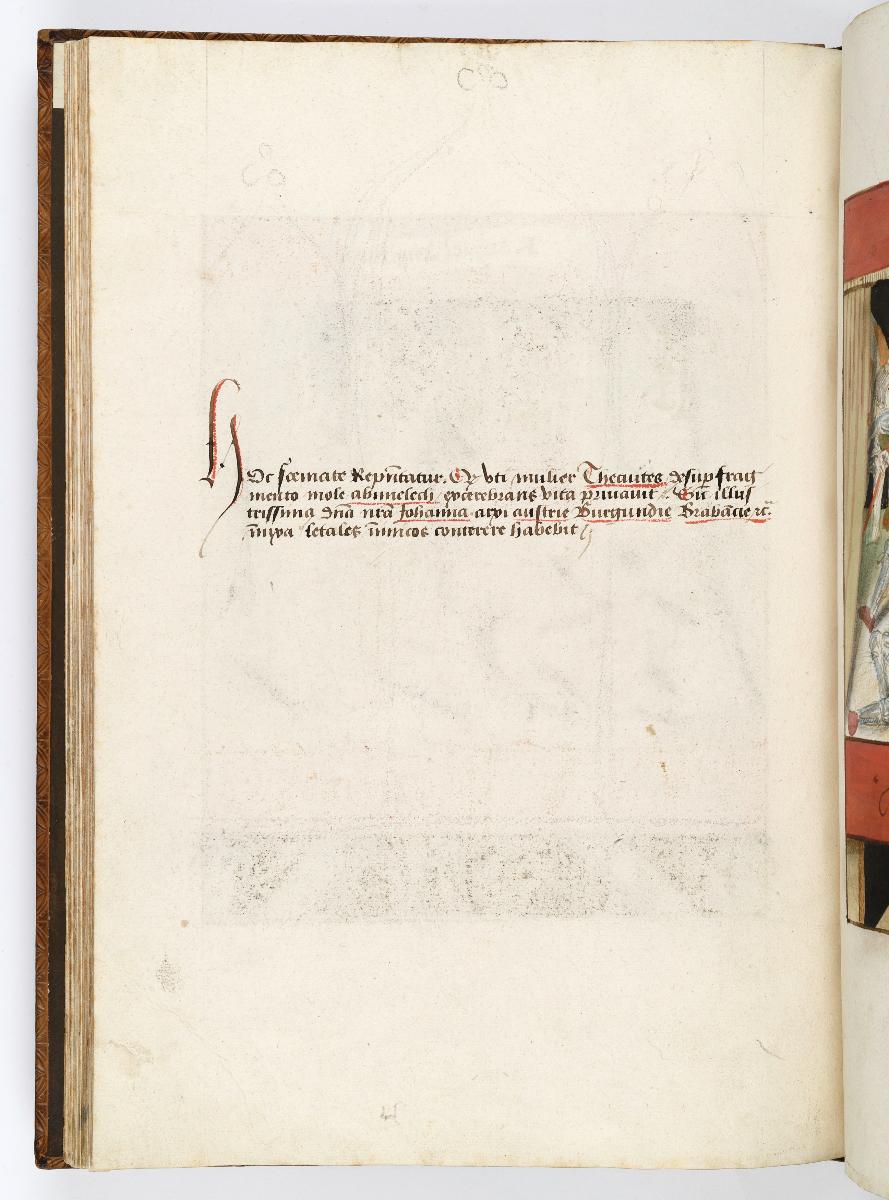 Hoc scemate Rep̄ntatur. Qȝ vti mulier Thecuites desup̄ frag
mento mole abimelech excerebrans vita priuauit. Sic illus
trissima dn̄a nr̄a Johanna arxi austrie Burgundie Brabācie ꝛcᷓ.
letales inimicos conterere habebit